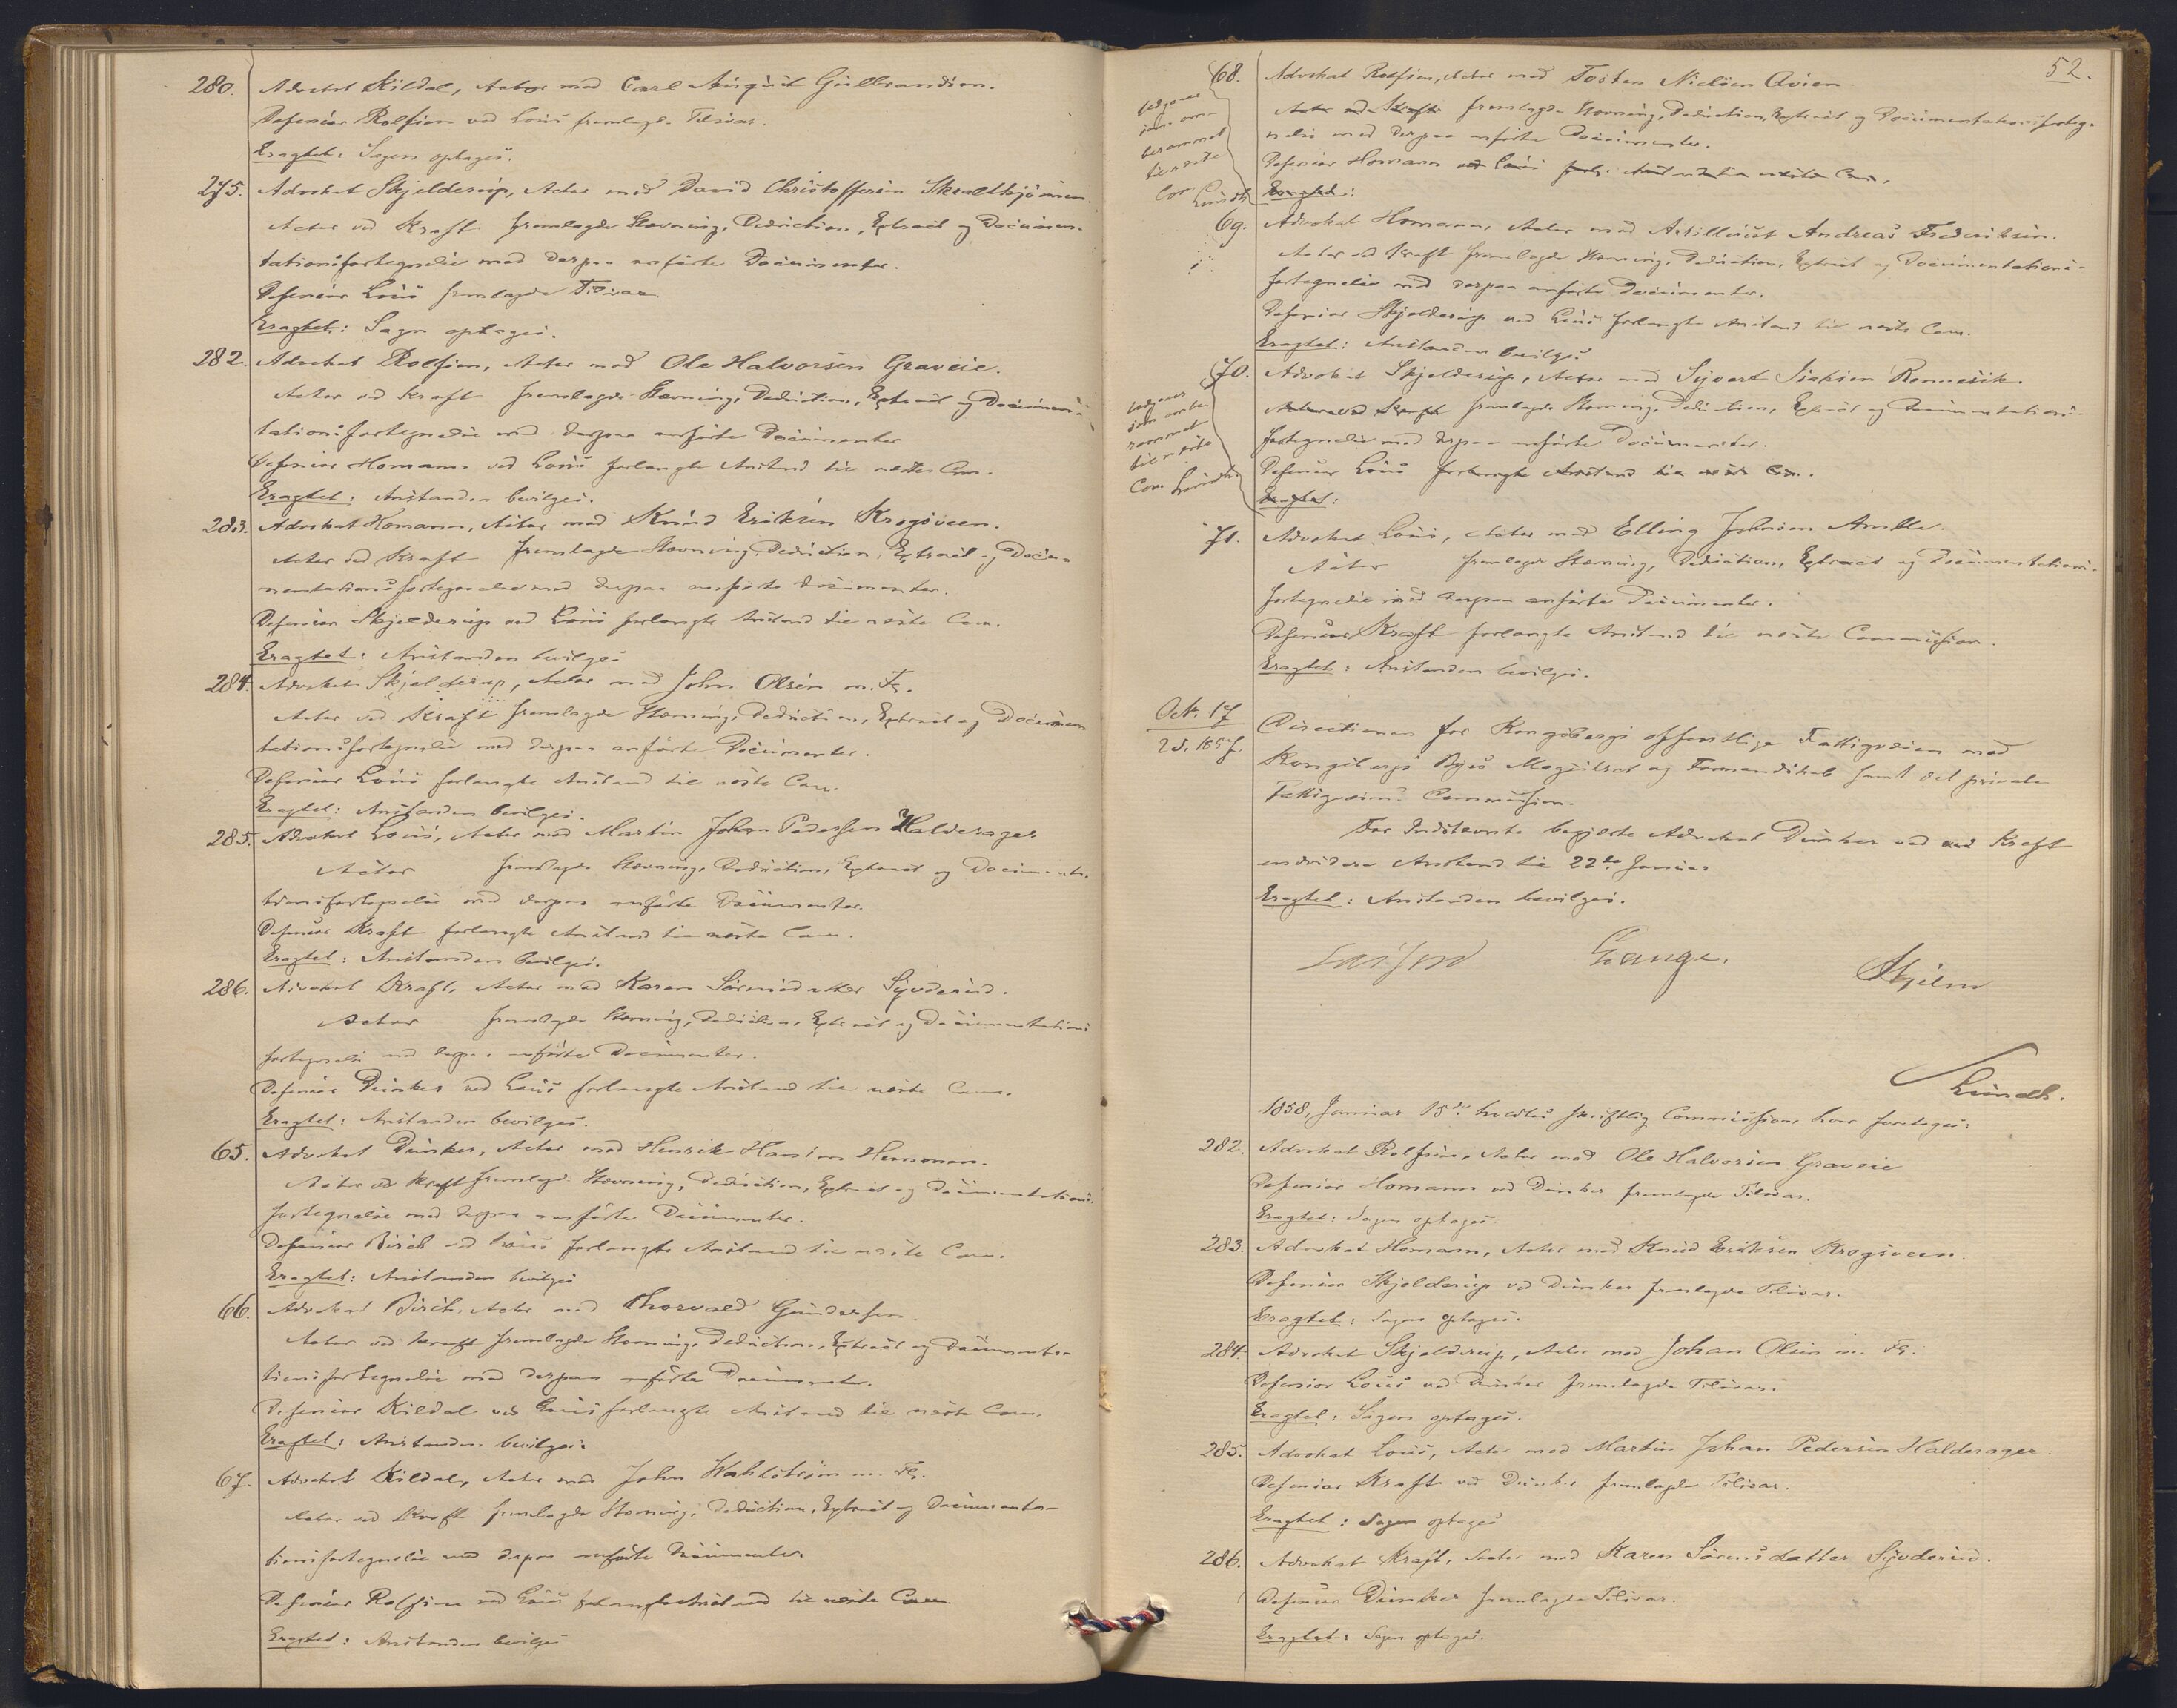 280. Advokat Kildal, Actor mod Carl August Gulbrandsen.
Defensor Rolfsen ved Lous fremlagde Tilsvar.
Eragtet: Sagen optages.
275. Advokat Skjelderup, Actor mod David Christoffersen Skraltkjönnen.
Actor ved Kraft fremlagde Stævning, Deduction, Extract og Documen-
tationsfortegnelse med derpaa anførte Documenter.
Defensor Lous fremlagde Tilsvar.
Eragtet: Sagen optages.
282. Advokat Rolfsen, Actor mod Ole Halvorsen Graveie.
Actor ved Kraft fremlagde Stævning, Deduction, Extract og Documen-
tationsfortegnelse med derpaa anførte Documenter
Defensor Homann ved Lous forlangte Anstand til næste Com.
Eragtet: Anstanden bevilges.
283. Advokat Homann, Actor mod Knud Eriksen Krogsveen.
Actor ved Kraft fremlagde Stævning, Deduction, Extract og Docu-
mentationsfortegnelse med derpaa anførte Documenter.
Defensor Skjelderup ved Lous forlangte Anstand til næste Com.
Eragtet: Anstanden bevilges
284. Advokat Skjelderup, Actor mod John Olsen m. Fl.
Actor ved Kraft fremlagde Stævning, Deduction, Extract og Documen
tationsfortegnelse med derpaa anførte Documenter.
Defensor Lous forlangte Anstand til næste Com.
Eragtet: Anstanden bevilges.
285. Advokat Lous, Actor mod Martin Johan Pedersen Halderager
Actor fremlagde Stævning, Deduction, Extract og Documenta-
tionsfortegnelse med derpaa anførte Documenter.
Defensor Kraft forlangte Anstand til næste Com.
Eragtet: Anstanden bevilges.
286. Advokat Kraft, Actor mod Karen Sørensdatter Syverud.
Actor fremlagde Stævning, Deduction, Extract og Documentations
fortegnelse med derpaa anførte Documenter.
Defensor Dunker ved Lous forlangte Anstand til næste Com.
Eragtet: Anstanden bevilges.
65. Advokat Dunker, Actor mod Henrik Hansen Hemmen.
Actor ved Kraft fremlagde Stævning, Deduction, Extract og Documentations-
fortegnelse med derpaa anførte Documenter.
Defensor Birch ved Lous forlangte Anstand til næste Com.
Eragtet: Anstanden bevilges
66. Advokat Birch, Actor mod Thorvald Gundersen.
Actor ved Kraft fremlagde Stævning, Deduction, Extract og Documenta-
tionsfortegnelse med derpaa anførte Documenter.
Defensor Kildal ved Lous forlangte Anstand til næste Com.
Eragtet: Anstanden bevilges.
67. Advokat Kildal, Actor mod John Wahlstrøm m. Fl.
Actor ved Kraft fremlagde Stævning, Deduction, Extract og Documenta-
tionsfortegnelse med derpaa anførte Documenter.
Defensor Rolfsen ved Lous forlangte Anstand til næste Com
Eragtet: Anstanden bevilges
52.
68. Advokat Rolfsen, Actor mod Tosten Nielsen Qvien
Actor ved Kraft fremlagde Stævning, Deduction, Extract og Documentationsforteg-
nelse med derpaa anførte Documenter.
Defensor Homann ved Lous forl. Anstand til næste Com.
Eragtet:
udgaaer
som om-
berammet
til næste
Com. Lundh
69. Advokat Homann, Actor mod Artillerist Andreas Frederiksen.
Actor ved Kraft fremlagde Stævning, Deduction, Extract og Documentations-
fortegnelse med derpaa anførte Documenter.
Defensor Skjelderup ved Lous forlangte Anstand til næste Com.
Eragtet: Anstanden bevilges
70. Advokat Skjelderup, Actor mod Syvert Isaksen Rennesik.
Actor ved Kraft fremlagde Stævning, Deduction, Extract og Documentations-
fortegnelse med derpaa anførte Documenter.
Defensor Lous forlangte Anstand til næste Com.
Eragtet:
udgaaer
som ombe
rammet
til næste
Com. Lundh
71. Advokat Lous, Actor mod Elling Johnsen Amble.
Actor fremlagde Stævning, Deduction, Extract og Documentations-
fortegnelse med derpaa anførte Documenter.
Defensor Kraft forlangte Anstand til næste Commission.
Eragtet: Anstanden bevilges.
Oct. 17
28. 1857.
Directionen for Kongsbergs offentlige Fattigvæsen mod
Kongsbergs Byes Magistrat og Formandskab samt det private
Fattigvæsens Commission.
For Indstevnte begjerte Advokat Dunker ved Kraft
endvidere Anstand til 22de Januar
Eragtet: Anstanden bevilges.
Lasson Hjelm
Lundh.
1858, Januar 15de holdtes skriftlig Commission, hvor foretoges:
282. Advokat Rolfsen, Actor mod Ole Halvorsen Graveie
Defensor Homann ved Dunker fremlagde Tilsvar.
Eragtet: Sagen optages.
283. Advokat Homann, Actor mod Knud Eriksen Krogsveen.
Defensor Skjelderup ved Dunker fremlagde Tilsvar.
Eragtet: Sagen optages.
284. Advokat Skjelderup, Actor mod Johan Olsen m. Fl.
Defensor Lous ved Dunker fremlagde Tilsvar.
Eragtet: Sagen optages.
285. Advokat Lous, Actor mod Martin Johan Pedersen Halderager.
Defensor Kraft ved Dunker fremlagde Tilsvar.
Eragtet: Sagen optages
286. Advokat Kraft, Actor mod Karen Sørensdatter Syverud.
Defensor Dunker fremlagde Tilsvar.
Eragtet: Sagen optages.